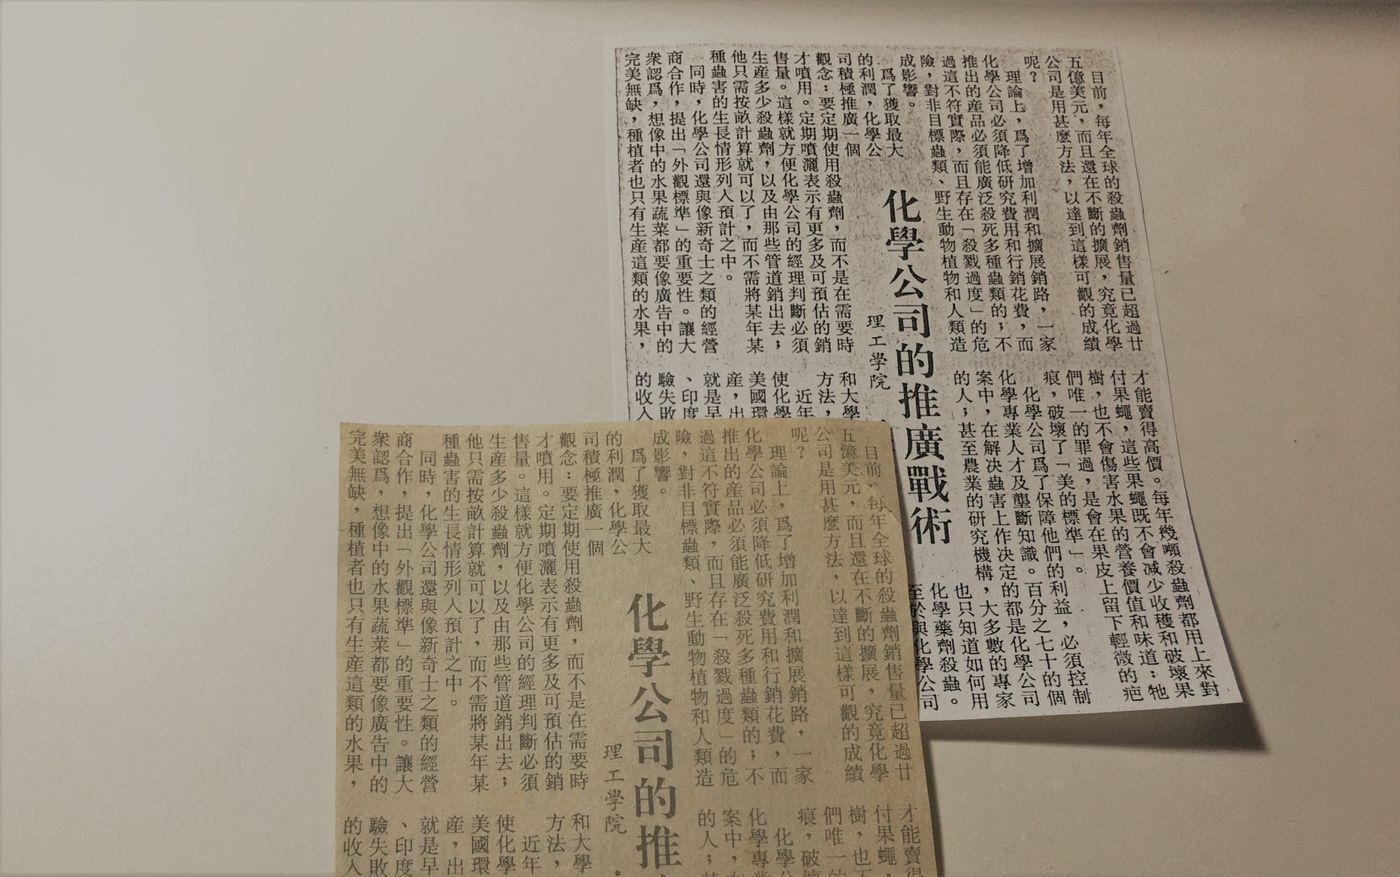 化學公司的推廣戰術
理工學院
目前，每年全球的殺蟲劑銷售量已超過廿
五億美元，而且還在不斷的擴展，究竟化學
公司是用甚麼方法，以達到這樣可觀的成績
呢？
理論上，爲了增加利潤和擴展銷路，一家
化學公司必須降低研究費用和行銷花費，而
推出的産品必須能廣泛殺死多種蟲類的；不
過這不符實際，而且存在「殺戮過度」的危
險，對非目標蟲類、野生動物植物和人類造
成影響。
爲了獲取最大
的利潤，化學公
司積極推廣一個
觀念：要定期使用殺蟲劑，而不是在需要時
才噴用。定期噴灑表示有更多及可預估的銷
售量。這樣就方便化學公司的經理判斷必須
生産多少殺蟲劑，以及由那些管道銷出去；
他只需按畝計算就可以了，而不需將某年某
種蟲害的生長情形列人預計之中。
同時，化學公司還與像新奇士之類的經營
商合作，提出「外觀標準」的重要性。讓大
衆認爲，想像中的水果蔬菜都要像廣告中的
完美無缺，種植者也只有生産這類的水果，
才能賣得高價。每年幾噸殺蟲劑都用上來對
付果蠅，這些果蠅既不會減少收穫和破壞果
樹，也不會傷害水果的營養價值和味道：牠
們唯一的罪過，是會在果皮上留下輕微的疤
痕，破壞了「美的標準」。
化學公司爲了保障他們的利益，必須控制
化學專業人才及壟斷知識。百分之七十的個
案中，在解決蟲害上作決定的都是化學公司
的人；甚至農業的研究機構，大多數的專家
也只知道如何用
化學藥劑殺蟲。
至於與化學公司
和大學
方法，
近年
使化學
美國環
産，出
就是早
、印度
驗失敗
的收入
化學公司的推
理工學院
目前，每年全球的殺蟲劑銷售量已超過廿
五億美元，而且還在不斷的擴展，究竟化學
公司是用甚麼方法，以達到這樣可觀的成績
呢？
理論上，爲了增加利潤和擴展銷路，一家
化學公司必須降低研究費用和行銷花費，而
推出的産品必須能廣泛殺死多種蟲類的；不
過這不符實際，而且存在「殺戮過度」的危
險，對非目標蟲類、野生動物植物和人類造
成影響。
爲了獲取最大
的利潤，化學公
司積極推廣一個
觀念：要定期使用殺蟲劑，而不是在需要時
才噴用。定期噴灑表示有更多及可預估的銷
售量。這樣就方便化學公司的經理判斷必須
生産多少殺蟲劑，以及由那些管道銷出去；
他只需按畝計算就可以了，而不需將某年某
種蟲害的生長情形列人預計之中。
同時，化學公司還與像新奇士之類的經營
商合作，提出「外觀標準」的重要性。讓大
衆認爲，想像中的水果蔬菜都要像廣告中的
完美無缺，種植者也只有生産這類的水果，
才能賣得
付果蠅，
樹，也不
們唯一的
痕，破壞
化學公
化學專
案中，在
的人；甚
和大學
方法，
近年
使化學
美國環
産，出
就是早
、印度
驗失敗
的收入